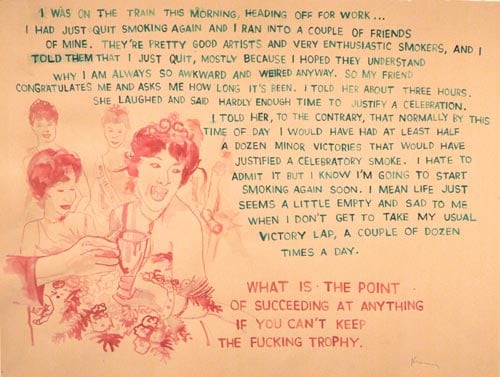 I WAS ON THE TRAIN THIS MORNING, HEADING OFF FOR WORK...
I HAD JUST QUIT SMOKING AGAIN AND I RAN INTO A COUPLE OF FRIENDS
OF MINE. THEY'RE PRETTY GOOD ARTISTS AND VERY ENTHUSIASTIC SMOKERS, AND I
TOLD THEM THAT I JUST QUIT, MOSTLY BECAUSE I HOPED THEY UNDERSTAND
WHY I AM ALWAYS SO AWKWARD AND WEIRED ANYWAY. SO MY FRIEND
CONGRATULATES ME AND ASKS ME HOW LONG IT'S BEEN. I TOLD HER ABOUT THREE HOURS.
SHE LAUGHED AND SAID HARDLY ENOUGH TIME TO JUSTIFY A CELEBRATION.
I TOLD HER, TO THE CONTRARY, THAT NORMALLY BY THIS
TIME OF DAY I WOULD HAVE HAD AT LEAST HALF
A DOZEN MINOR VICTORIES THAT WOULD HAVE
JUSTIFIED A CELEBRATORY SMOKE. I HATE TO
ADMIT IT BUT I KNOW I'M GOING TO START
SMOKING AGAIN SOON. I MEAN LIFE JUST
SEEMS A LITTLE EMPTY AND SAD TO ME
WHEN I DON'T GET TO TAKE MY USUAL
VICTORY LAP, A COUPLE OF DOZEN
TIMES A DAY.
WHAT IS THE POINT
OF SUCCEEDING AT ANYTHING
IF YOU CAN'T KEEP
THE FUCKING TROPHY.